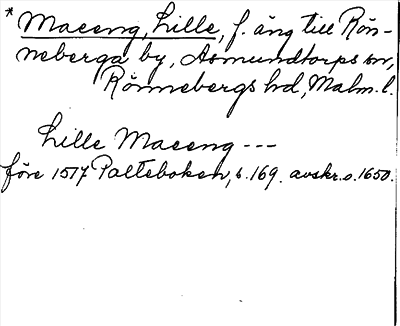 * Maceng, Lille, f. äng till Rön-
neberga by, Asmundtorps sn,
Rönnebergs hd, Malm. l.
Lille Maceng ---
före 1517 Palteboken, s. 169. avskr. o. 1650.